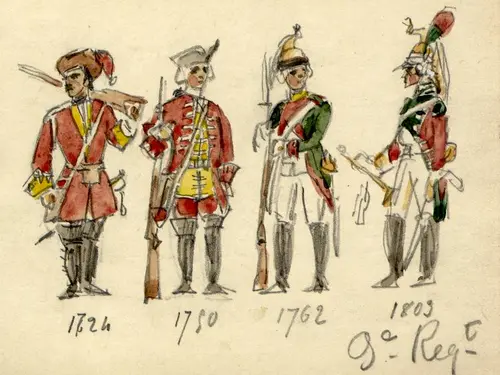 1724 1750 1762 1803
Dª Regt